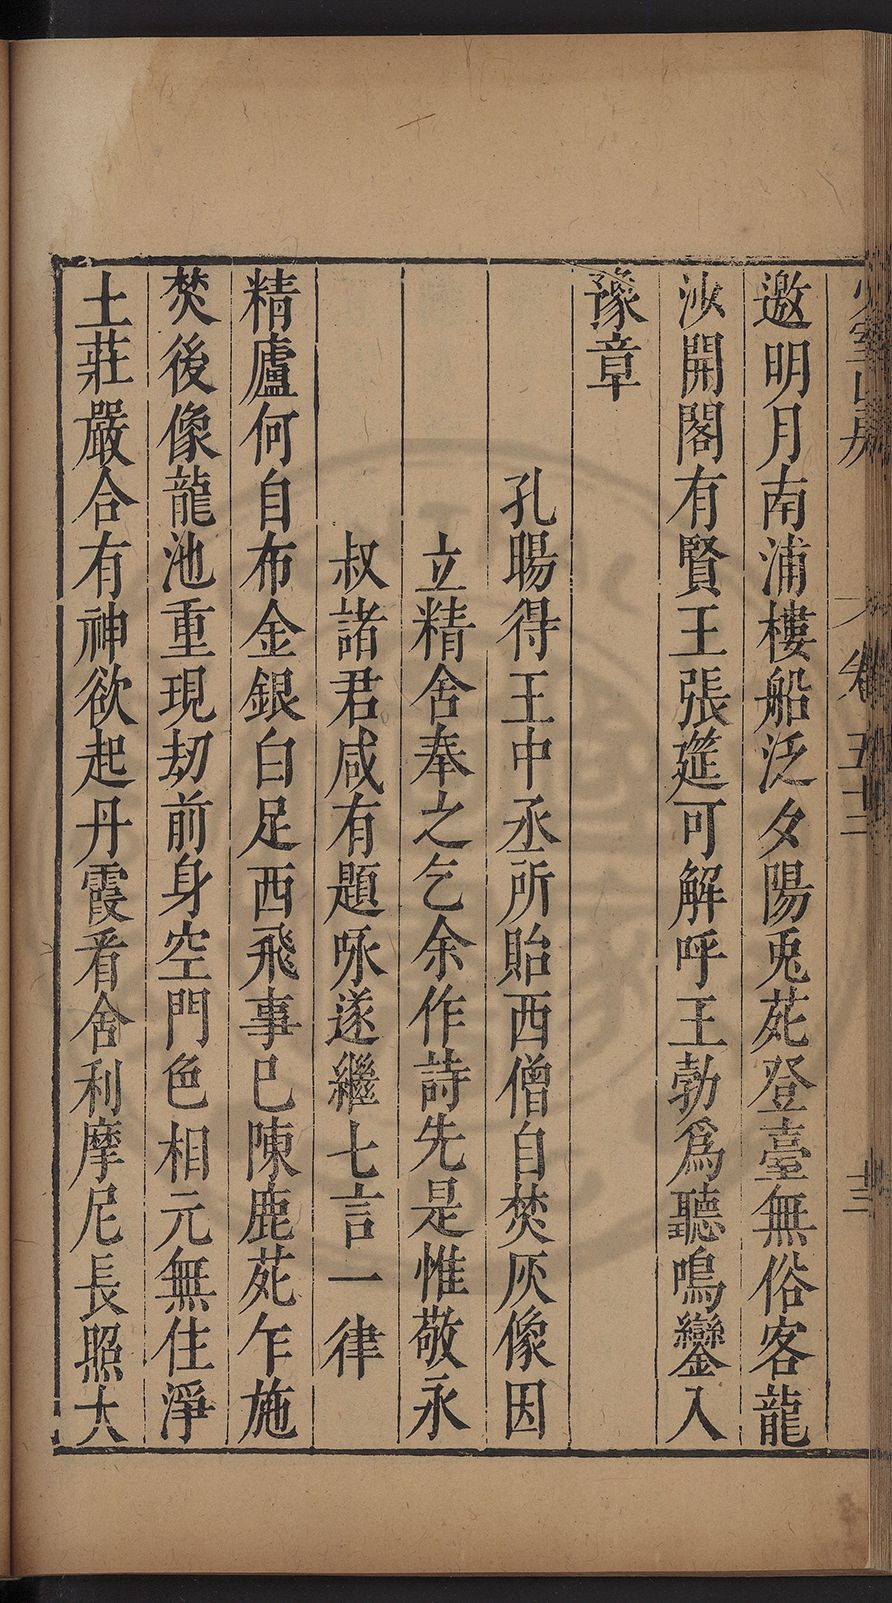 邀明月南浦樓船泛夕陽兎苑登臺無俗客龍
沙開閣有賢王張筵可解呼王勃爲聽鳴鑾入
豫章
孔暘得王中丞所貽西僧自焚灰像因
立精舍奉之乞余作詩先是惟敬永
叔諸君咸有題咏遂繼七言一律
精廬何自布金銀白足西飛事已陳鹿苑乍施
焚後像龍池重現劫前身空門色相元無住淨
土莊嚴合有神欲起丹霞看舍利摩尼長照大